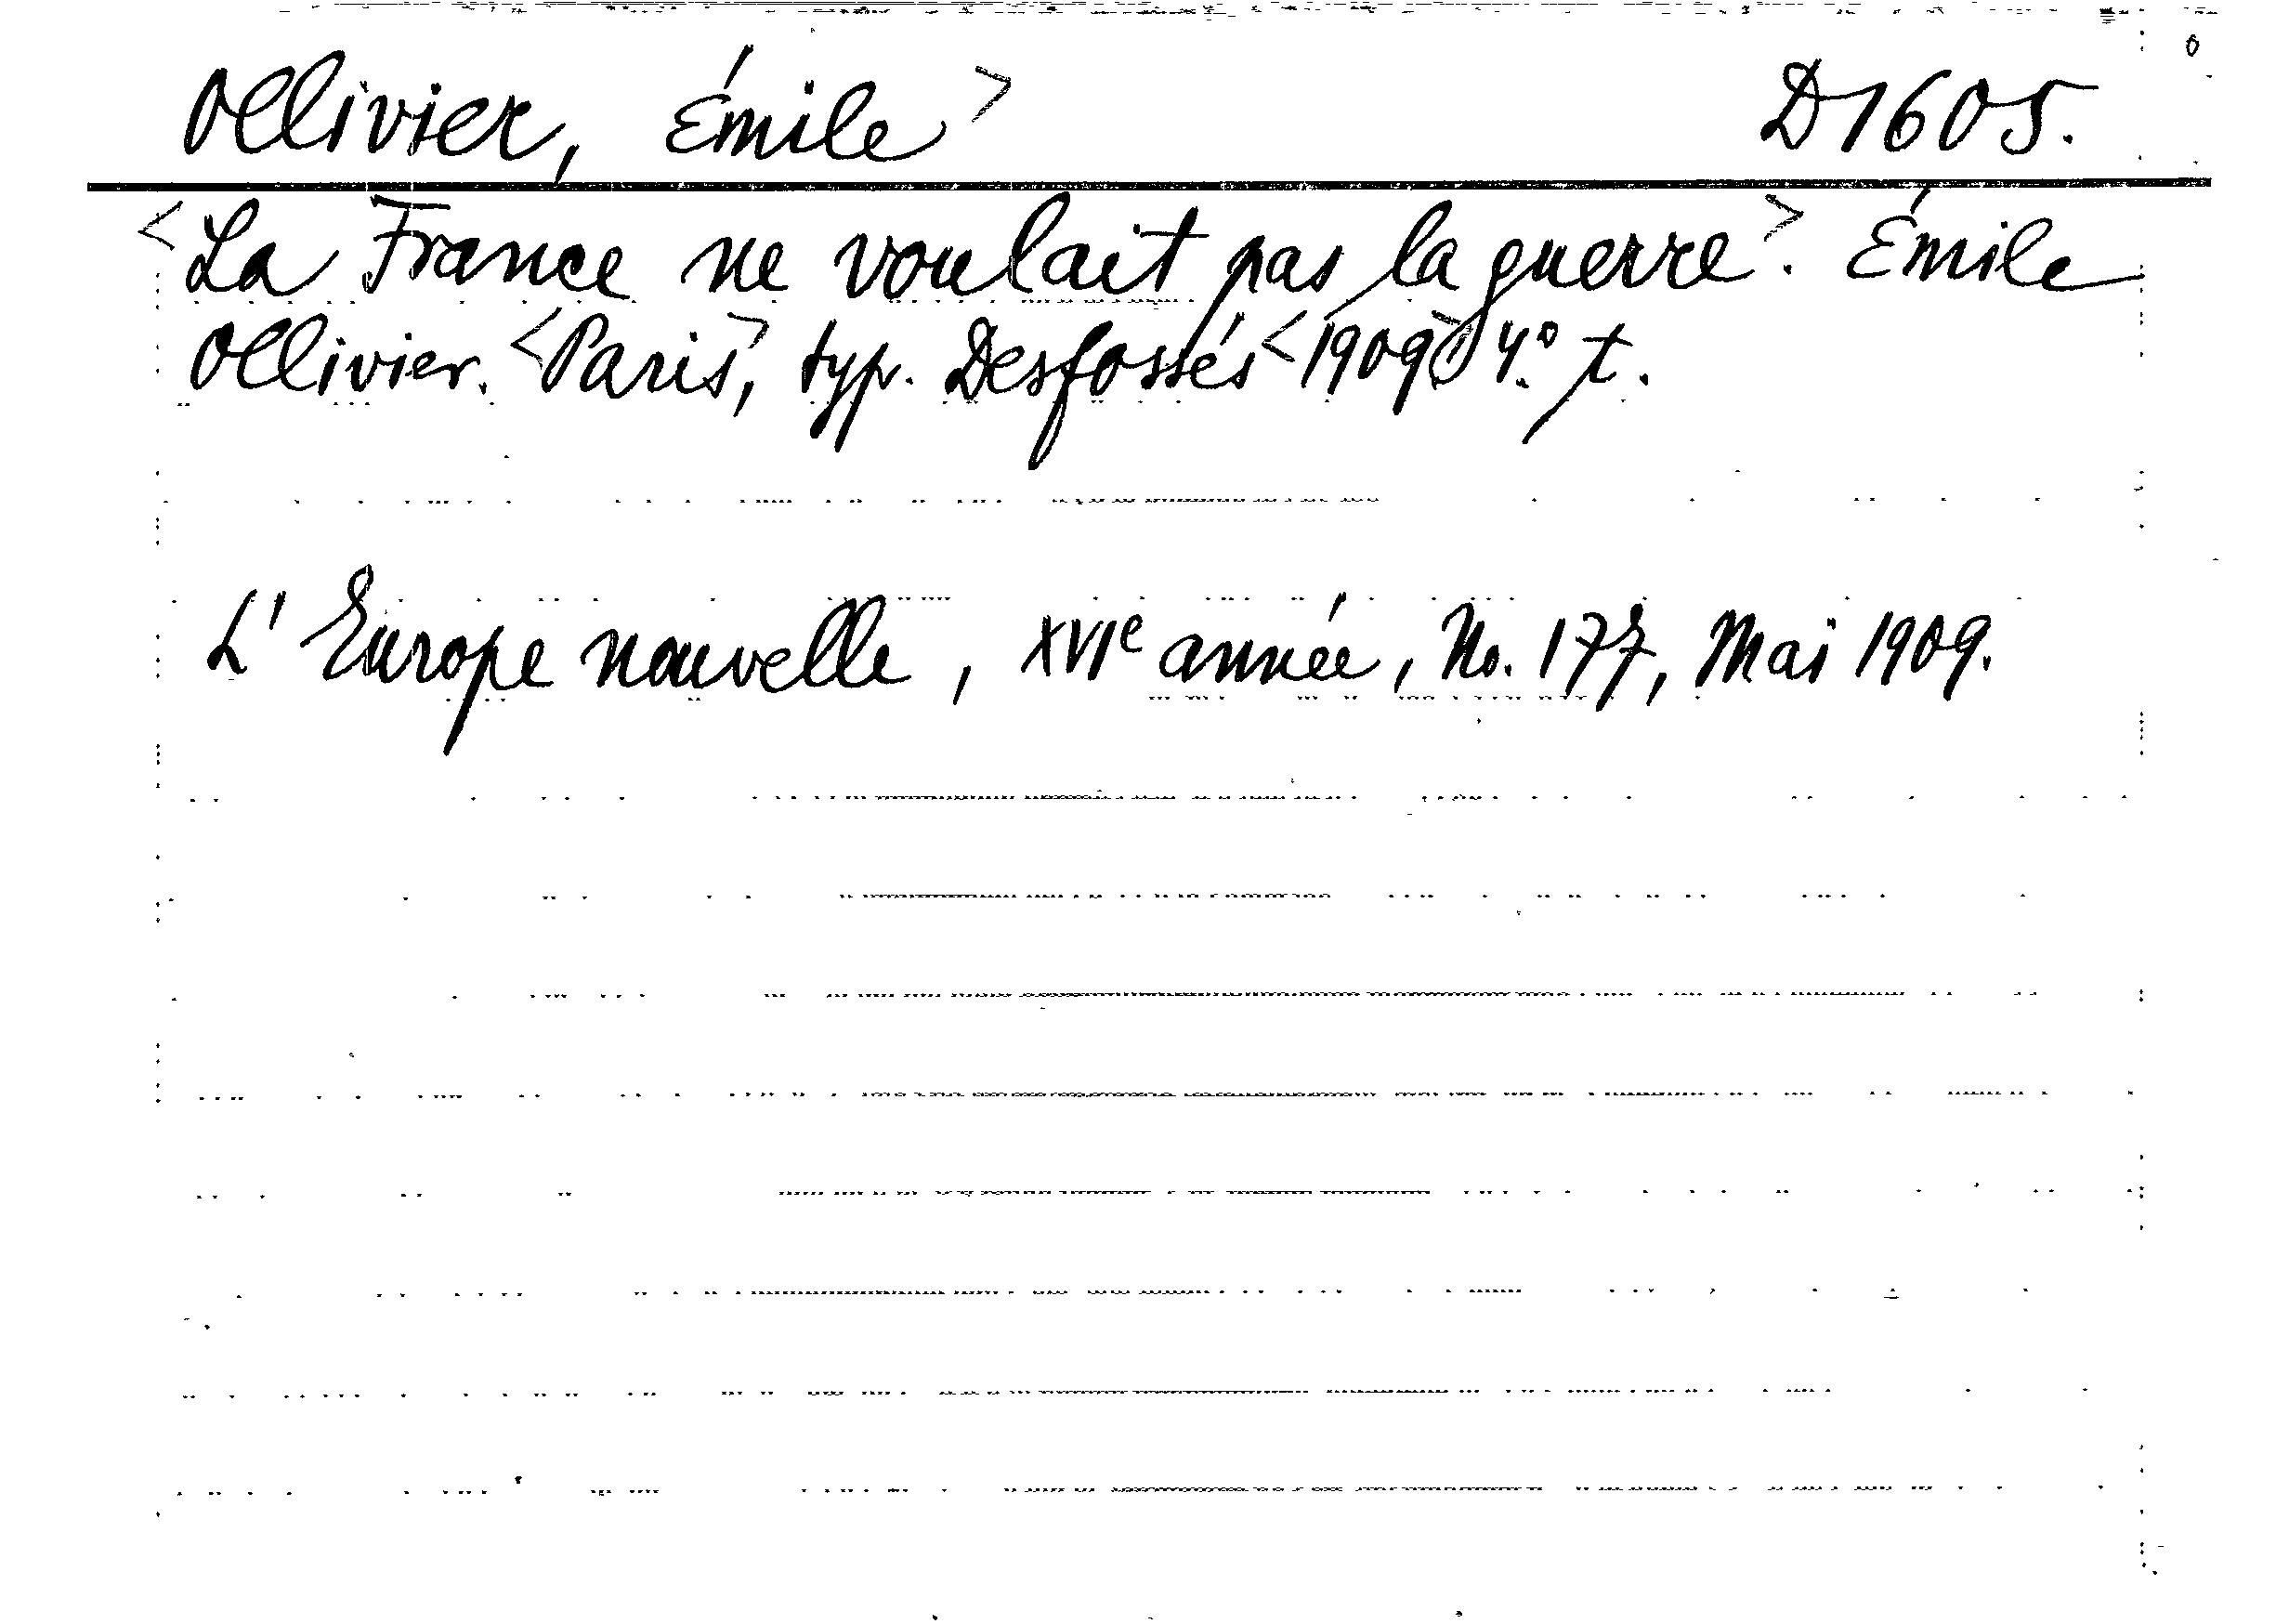 Ollivier, Émile> D1605.
<La France ne voulait pas la guerre>. Émile
Ollivier. <Paris>, typ. Desfossés <1909> 4.° t.
L'Europe nouvelle, XVIe année, No. 177, Mai 1909.